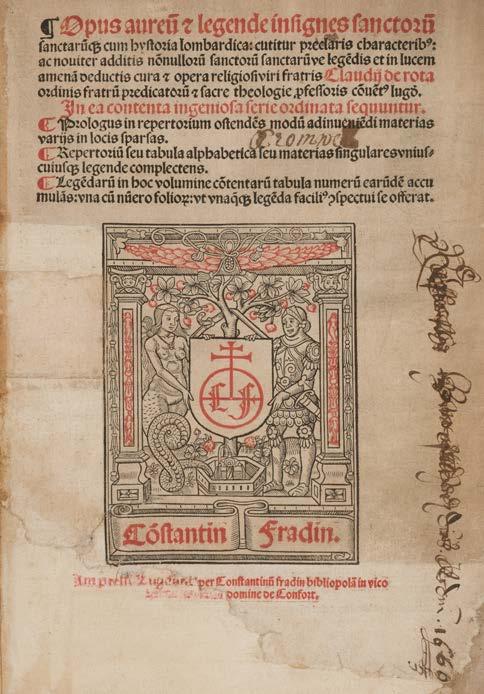 ¶ Opus aureũ ⁊ legende insignes sanctorũ
sanctarũqꝫ cum hystoria lombardica: cutitur preclaris characteribꝰ:
ac nouiter additis nõnullorũ sanctorũ sanctarũve legẽdis et in lucem
amenã deductis cura ⁊ opera religiosi viri fratris Claudij de rota
ordinis fratrũ predicatorũ ⁊ sacre theologie ꝓfessoris cõuẽtꝰ lugd.
In ea contenta ingeniosa serie ordinata sequuntur.
¶ Prologus in repertorium ostendẽs modũ adinueniẽdi materias
varijs in locis sparsas.
¶ Repertoriũ seu tabula alphabetica seu materias singulares vnius-
cuiusqꝫ legende complectens.
¶ Legẽdarũ in hoc volumine cõtentarũ tabula numerũ earũdẽ accu
mulãs: vna cũ nũero folioꝝ: vt vnaq̃qꝫ legẽda faciliꝰ ꝯspectui se offerat.
L F
Cõstantin Fradin.
per Constantinũ fradin bibliopolã in vico
domine de Confort.
1660